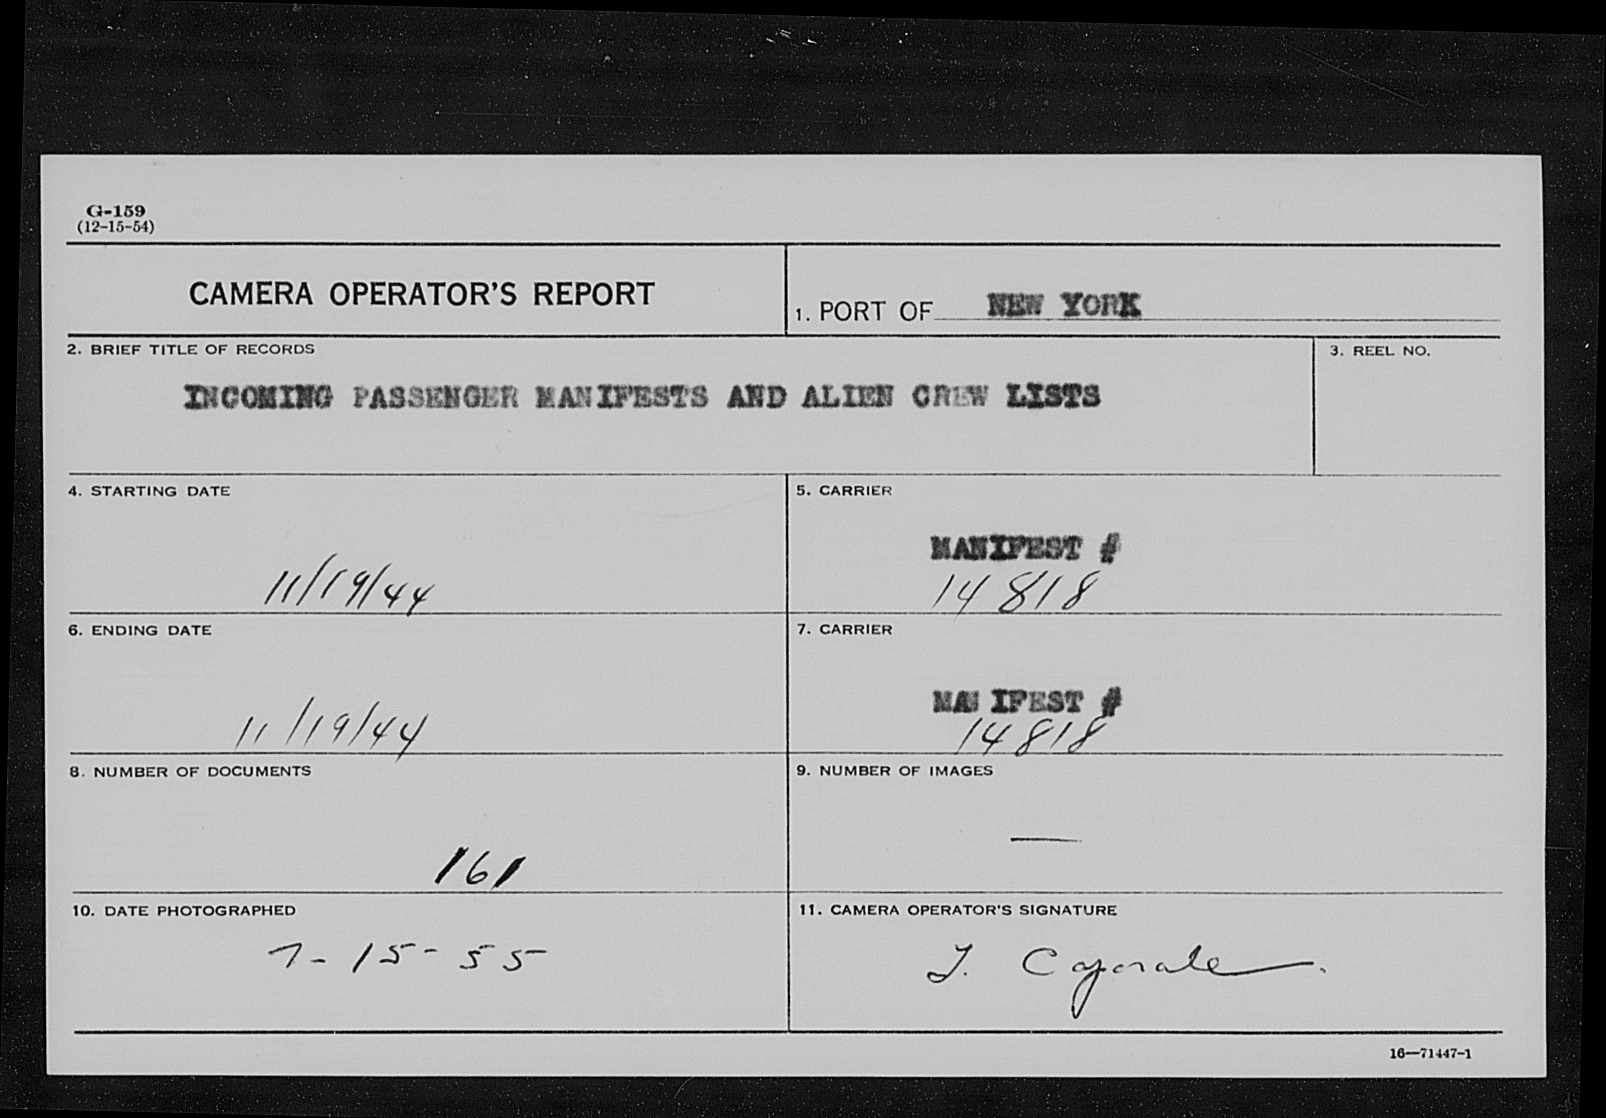 G-159
(12-15-54)
CAMERA OPERATOR'S REPORT
1. PORT OF NEW YORK
2. BRIEF TITLE OF RECORDS
3. REEL NO.
INCOMING PASSENGER MANIFESTS AND ALIEN CREW LISTS
4. STARTING DATE
5. CARRIER
MANIFEST #
11/19/44
14818
6. ENDING DATE
7. CARRIER
MANIFEST #
11/19/44
14818
8. NUMBER OF DOCUMENTS
9. NUMBER OF IMAGES
—
161
10. DATE PHOTOGRAPHED
11. CAMERA OPERATOR'S SIGNATURE
7-15-55
16—71447-1